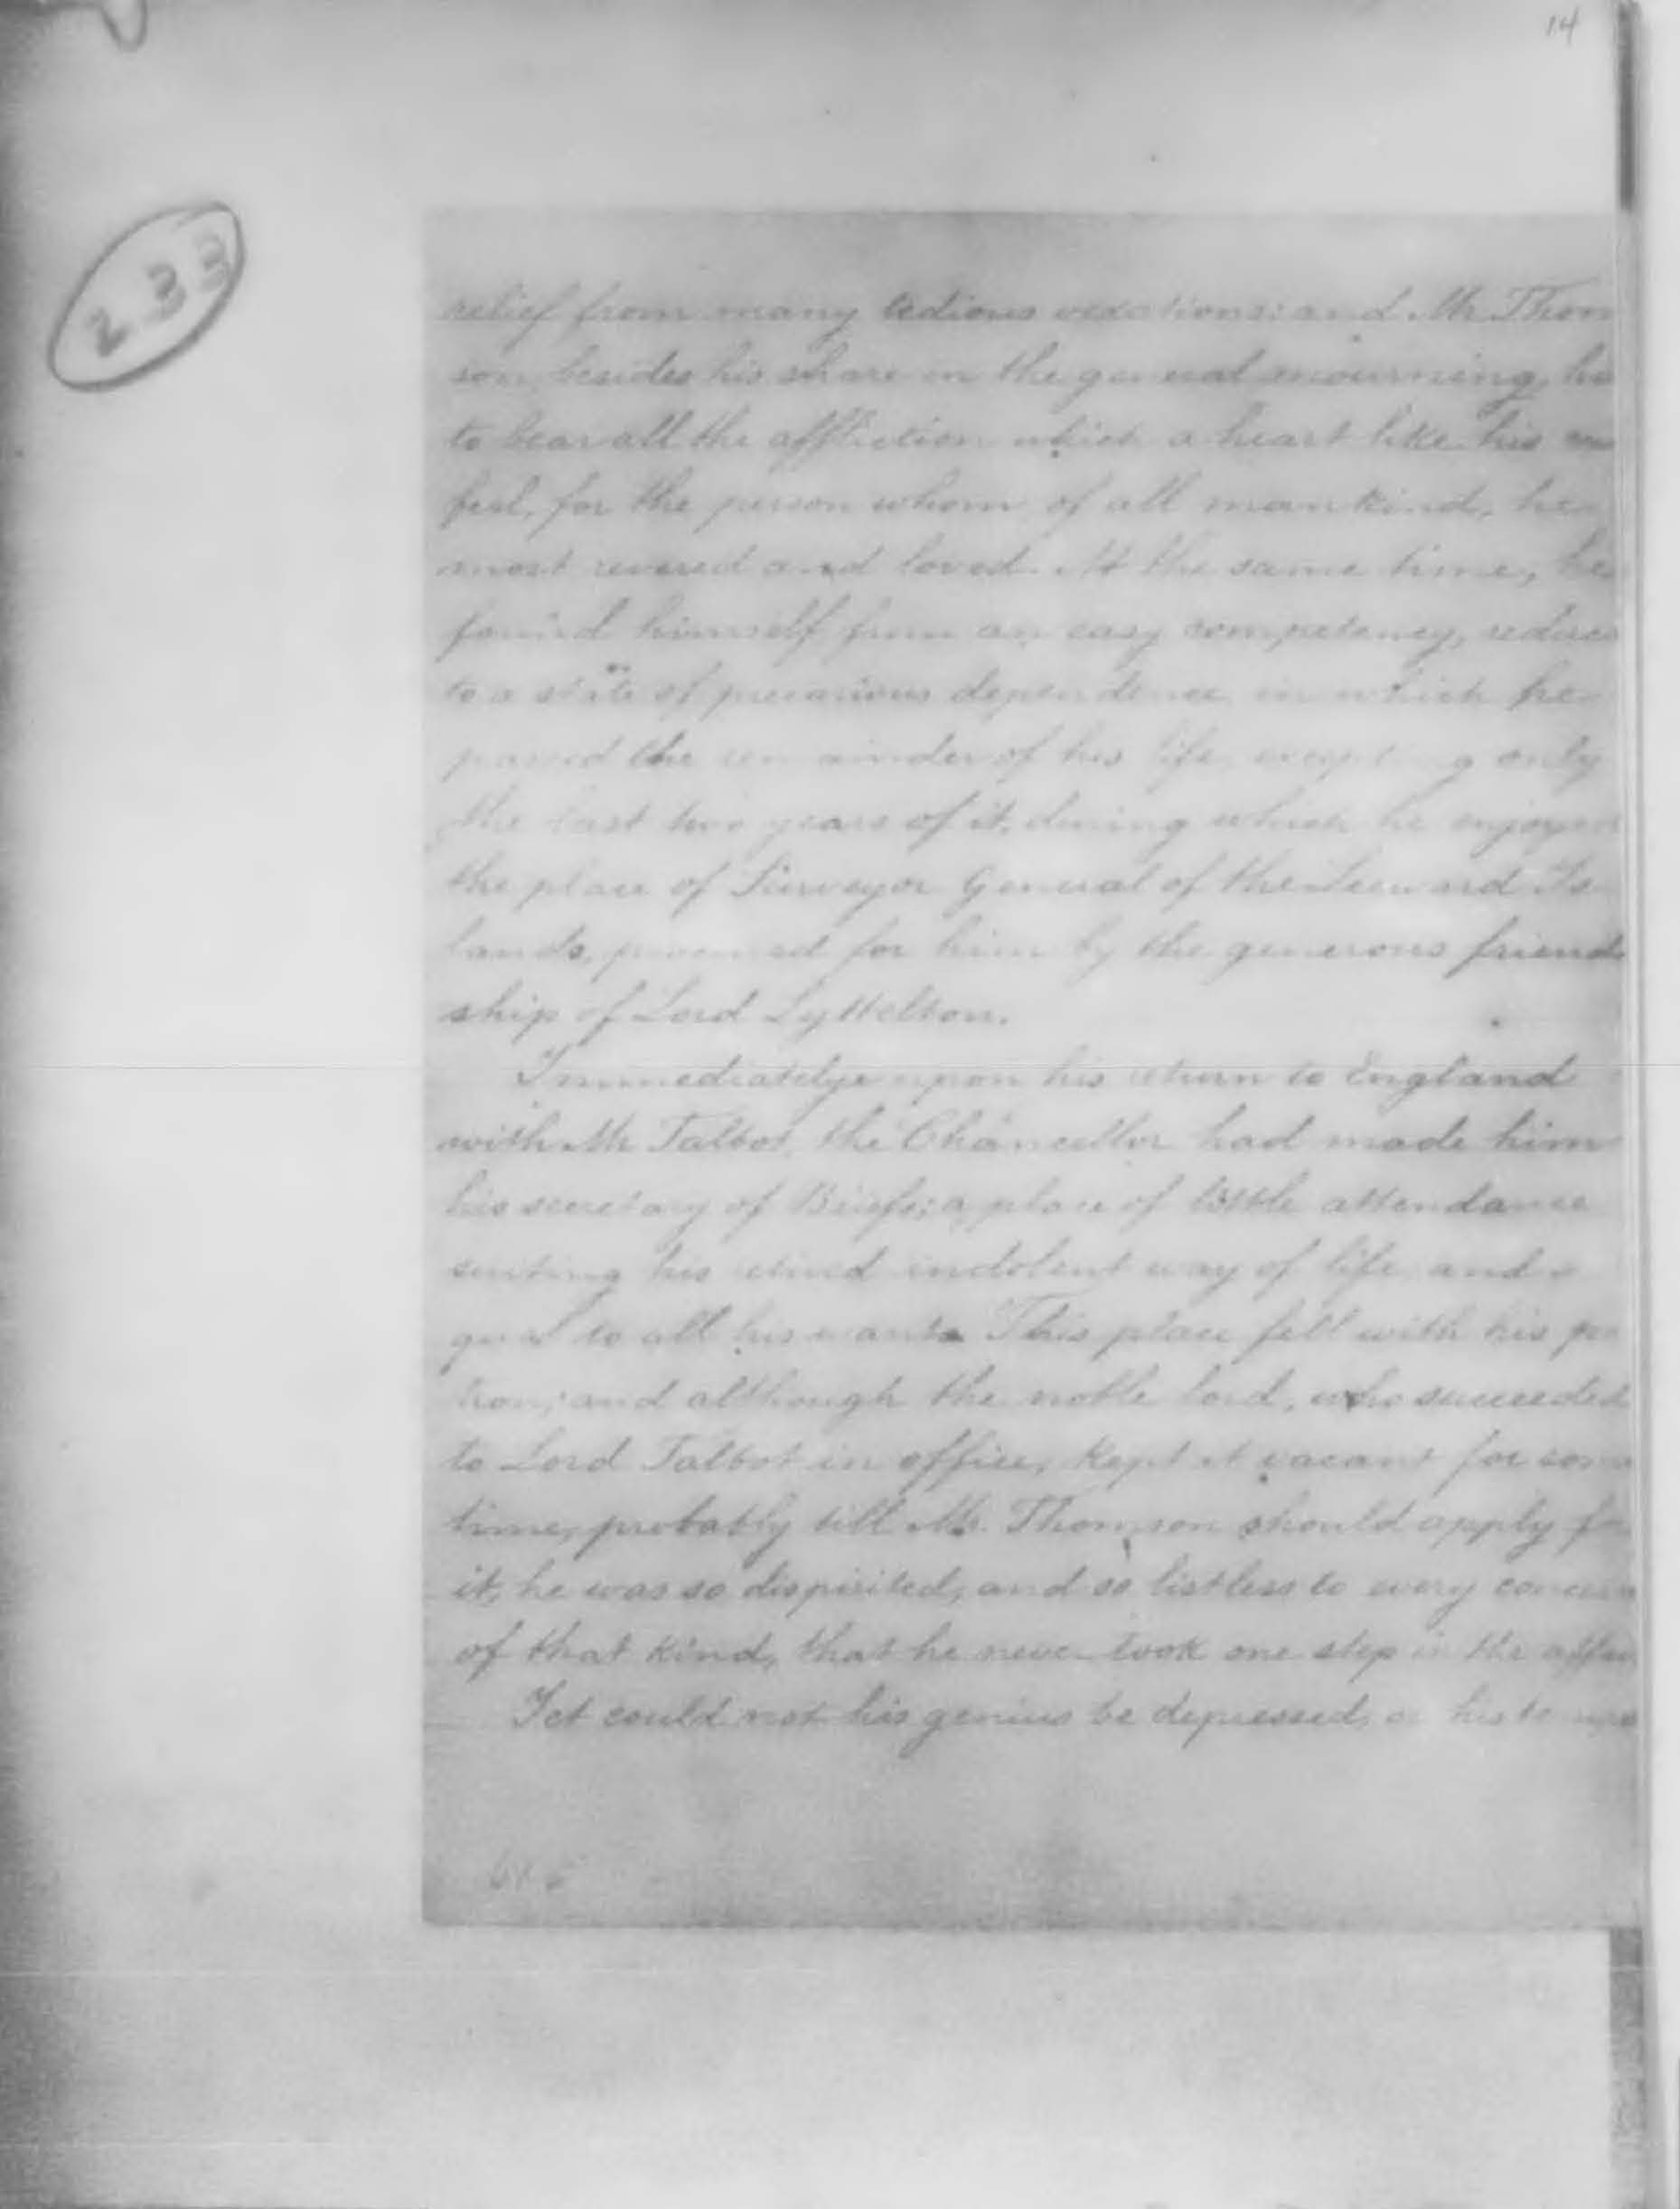 14
233
relief from many tedious vexations: and Mr Thom
son, besides his share in the general mourning, ha
to bear all the affliction which a heart like his
feel, for the person whom, of all mankind, he
most revered and loved. At the same time, he
found himself, from an easy competency, reduce
to a state of precarious dependence in which he
passed the remainder of his life, excepting only
the last two years of it, during which he enjoyed
the place of Surveyor General of the Leeward Is
lands, procured for him by the generous friend
ship of Lord Lyttelton.
Immediately upon his return to England
with Mr Talbot, the Chancellor had made him
his secretary of Briefs; a place of little attendance
suiting his retired indolent way of life and e
qual to all his wants. This place fell with his pa
tron; and although the noble lord, who succeeded
to Lord Talbot in office, kept it vacant for some
time, probably till Mr. Thomson should apply for
it, he was so dispirited, and so listless to every concern
of that kind, that he never took one step in the affai
Yet could not his genius be depressed, or his tempe